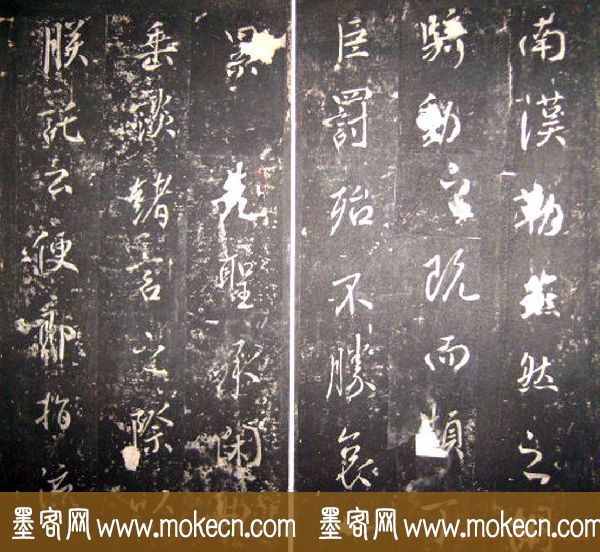 南勒燕然之
騎動既而頓
臣罰殆不勝哀
景先聖承閑
垂歎緒言之際
朕託云便指
墨客网 www.mokecn.com 墨客网 www.mokecn.com